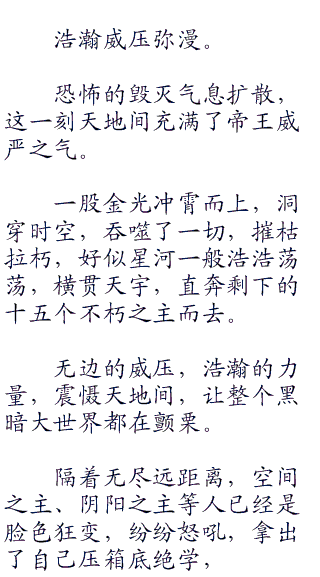 浩瀚威压弥漫。
恐怖的毁灭气息扩散，
这一刻天地间充满了帝王威
严之气。
一股金光冲霄而上，洞
穿时空，吞噬了一切，摧枯
拉朽，好似星河一般浩浩荡
荡，横贯天宇，直奔剩下的
十五个不朽之主而去。
无边的威压，浩瀚的力
量，震慑天地间，让整个黑
暗大世界都在颤栗。
隔着无尽远距离，空间
之主、阴阳之主等人已经是
脸色狂变，纷纷怒吼，拿出
了自己压箱底绝学，